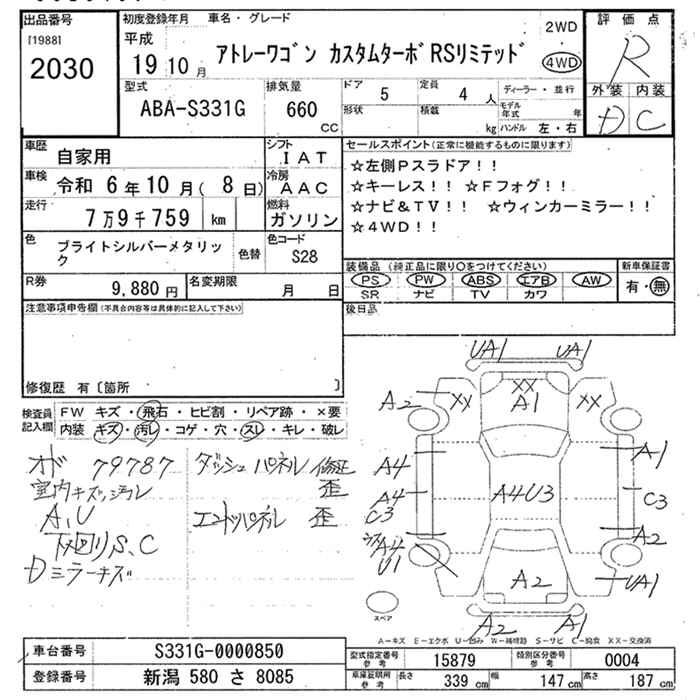 出品番号 初度登録年月 車名・グレード 評価点
[1988] 平成 2WD
2030 19 10 月 アトレーワゴン カスタムターボRSリミテッド 4WD R
型式 排気量 ドア 5 定員 4 人 ディーラー・並行 外装 内装
ABA-S331G 660 cc 形状 積載 kg モデル年式 年 ハンドル 左・右 D C
車歴 自家用 シフト IAT セールスポイント(正常に機能するものに限ります)
車検 令和 6年10月( 8日) 冷房 AAC ☆左側Pスラドア!!
☆キーレス!! ☆Fフォグ!!
走行 7万9千759 km 燃料 ガソリン ☆ナビ&TV!! ☆ウィンカーミラー!!
☆4WD!!
色 ブライトシルバーメタリック 色替 色コード S28
装備品(純正品に限り○をつけてください) 新車保証書
R券 9,880 円 名変期限 月 日 PS PW ABS エアB AW 有・無
SR ナビ TV カワ
注意事項申告欄(不具合内容等は具体的に記入して下さい) 後日品
修復歴 有〔箇所 〕
検査員記入欄 FW キズ・飛石・ヒビ割・リペア跡・×要
内装 キズ・汚レ・コゲ・穴・スレ・キレ・破レ
オド 79787 ダッシュパネル 修正
歪
A,U エンドパネル 歪
下回りS、C
Dミラーキズ
UA1 UA1
A2 XX XX A1 XX
A4 A1
A4 A4U3 C3
C3
A4 A2
U1 A2 UA1
スペア A2 A1
A-キズ E-エクボ U-凹み W-補修跡 S-サビ C-腐食 XX-交換済
車台番号 S331G-0000850 型式指定番号 参考 15879 類別区分番号 参考 0004
登録番号 新潟 580 さ 8085 車庫証明用 参考 長さ 339 cm 幅 147 cm 高さ 187 cm